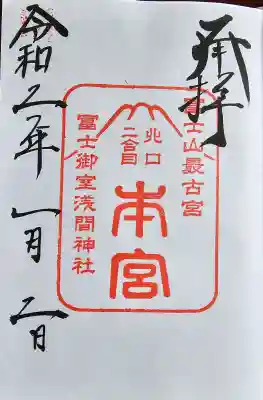 奉拝
富士山最古宮
北口
二合目
本宮
冨士御室浅間神社
令和二年 一月 二日